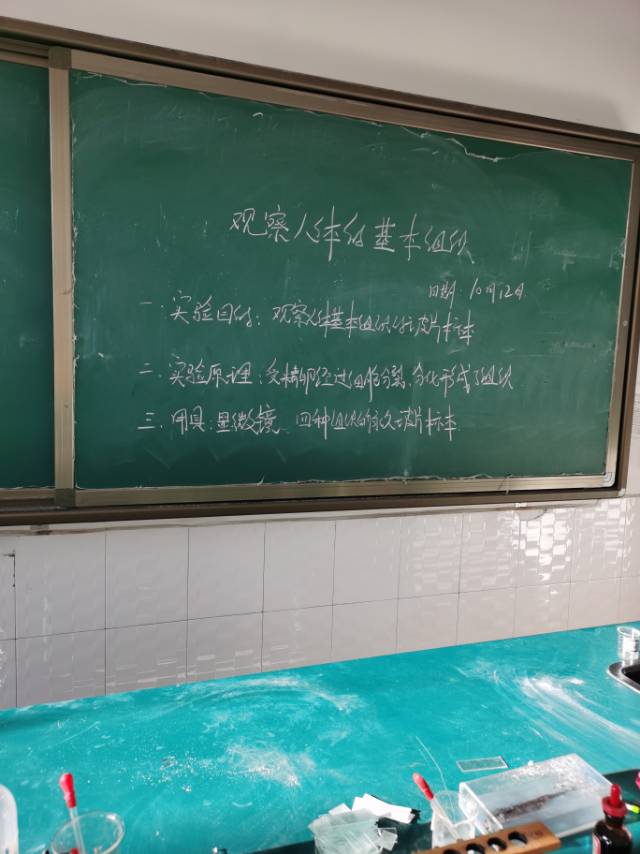 观察人体的基本组织
日期:10月12日
一:实验目的:观察人体基本组织的永久玻片标本
二:实验原理:受精卵经过细胞分裂、分化形成了组织
三:用具:显微镜 四种组织的永久玻片标本